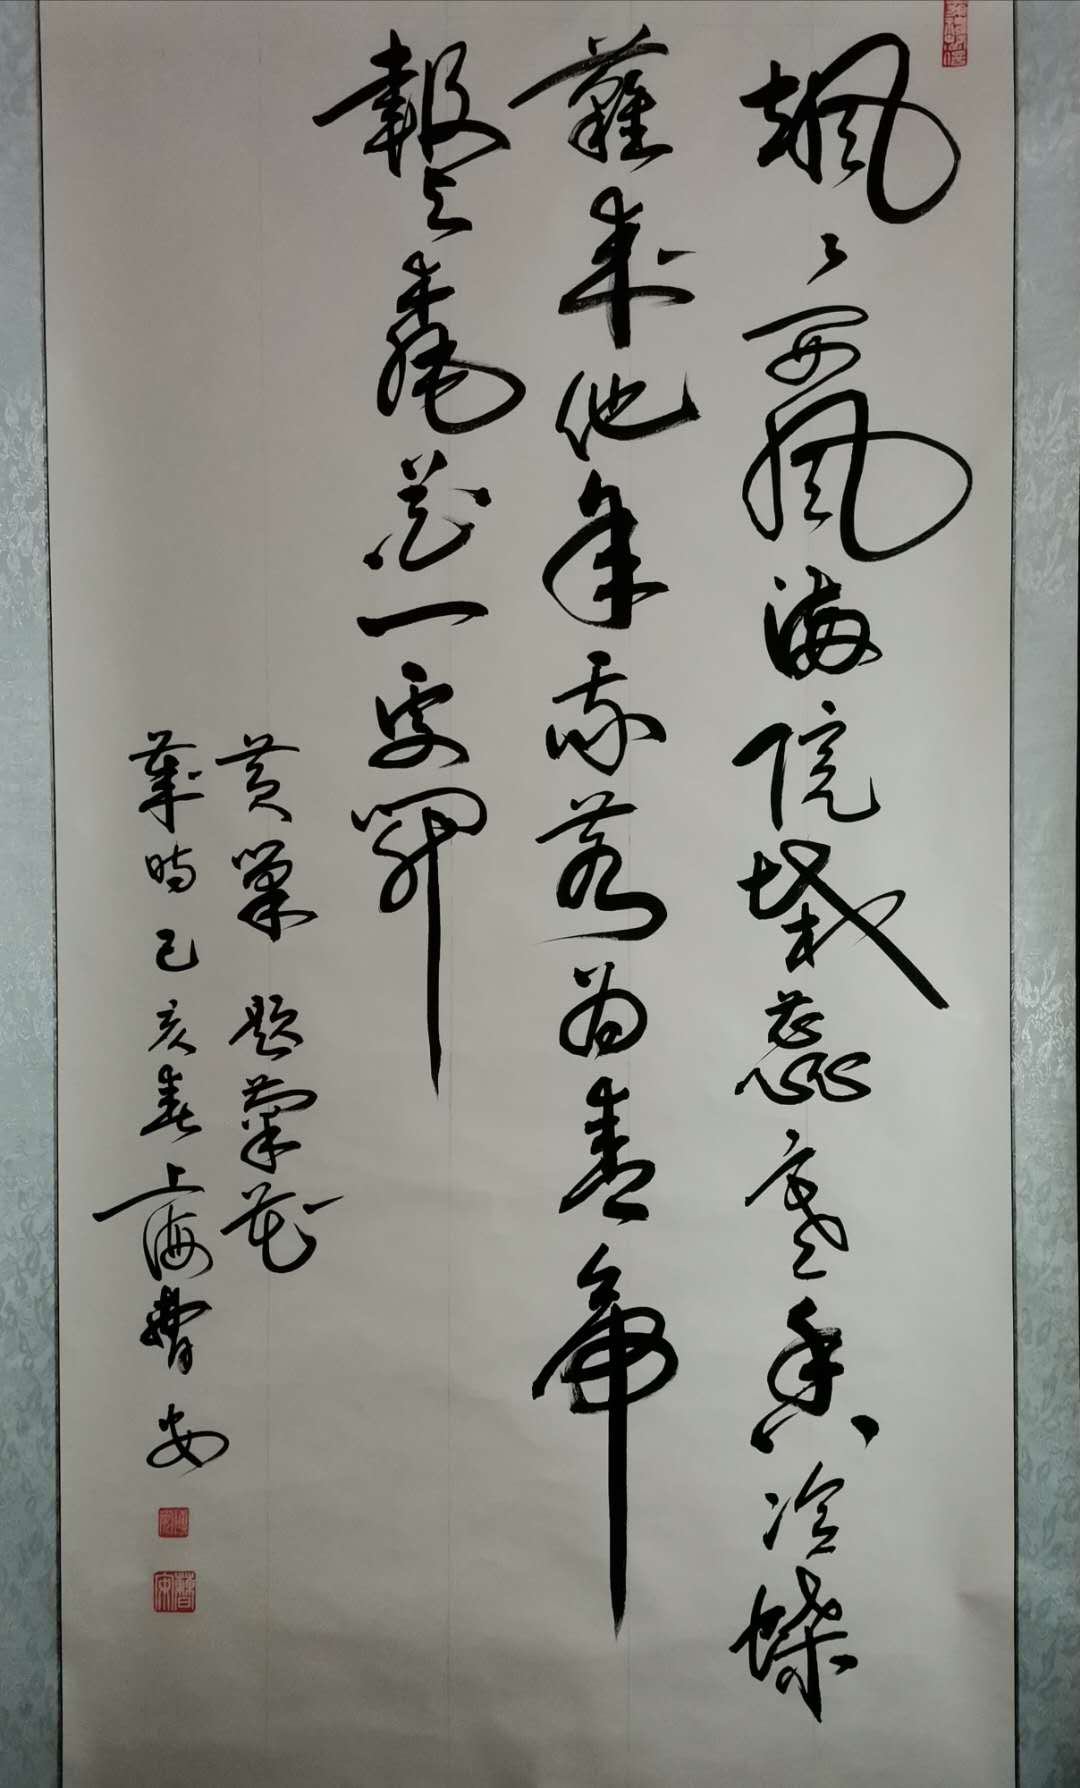 颯々西風滿院栽蕊寒香冷蝶
難來他年我若為青帝
報與桃花一處開
黃巢 題菊花
歲時己亥春上海曹安